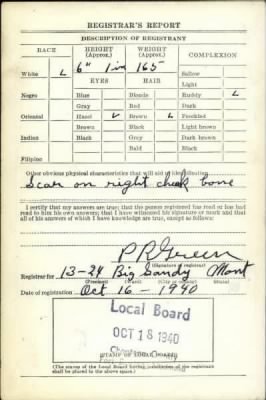 REGISTRAR'S REPORT
DESCRIPTION OF REGISTRANT
RACE HEIGHT (Approx.) WEIGHT (Approx.) COMPLEXION
White L 6" 1 in 165 Sallow
EYES HAIR Light
Negro Blue Blonde Ruddy L
Gray Red Dark
Oriental Hazel L Brown L Freckled
Brown Black Light brown
Indian Black Gray Dark brown
Bald Black
Filipino
Other obvious physical characteristics that will aid in identification
Scar on right cheek bone
I certify that my answers are true; that the person registered has read or has
read to him his own answers; that I have witnessed his signature or mark and that
all of his answers of which I have knowledge are true, except as follows:
P R Green
(Signature of registrar)
Registrar for 13-24 Big Sandy Mont
(Precinct) (City or county) (State)
Date of registration Oct 16 - 1940
Local Board
OCT 18 1940
STAMP OF LOCAL BOARD
(The stamp of the Local Board having jurisdiction of the registrant
shall be placed in the above space.)